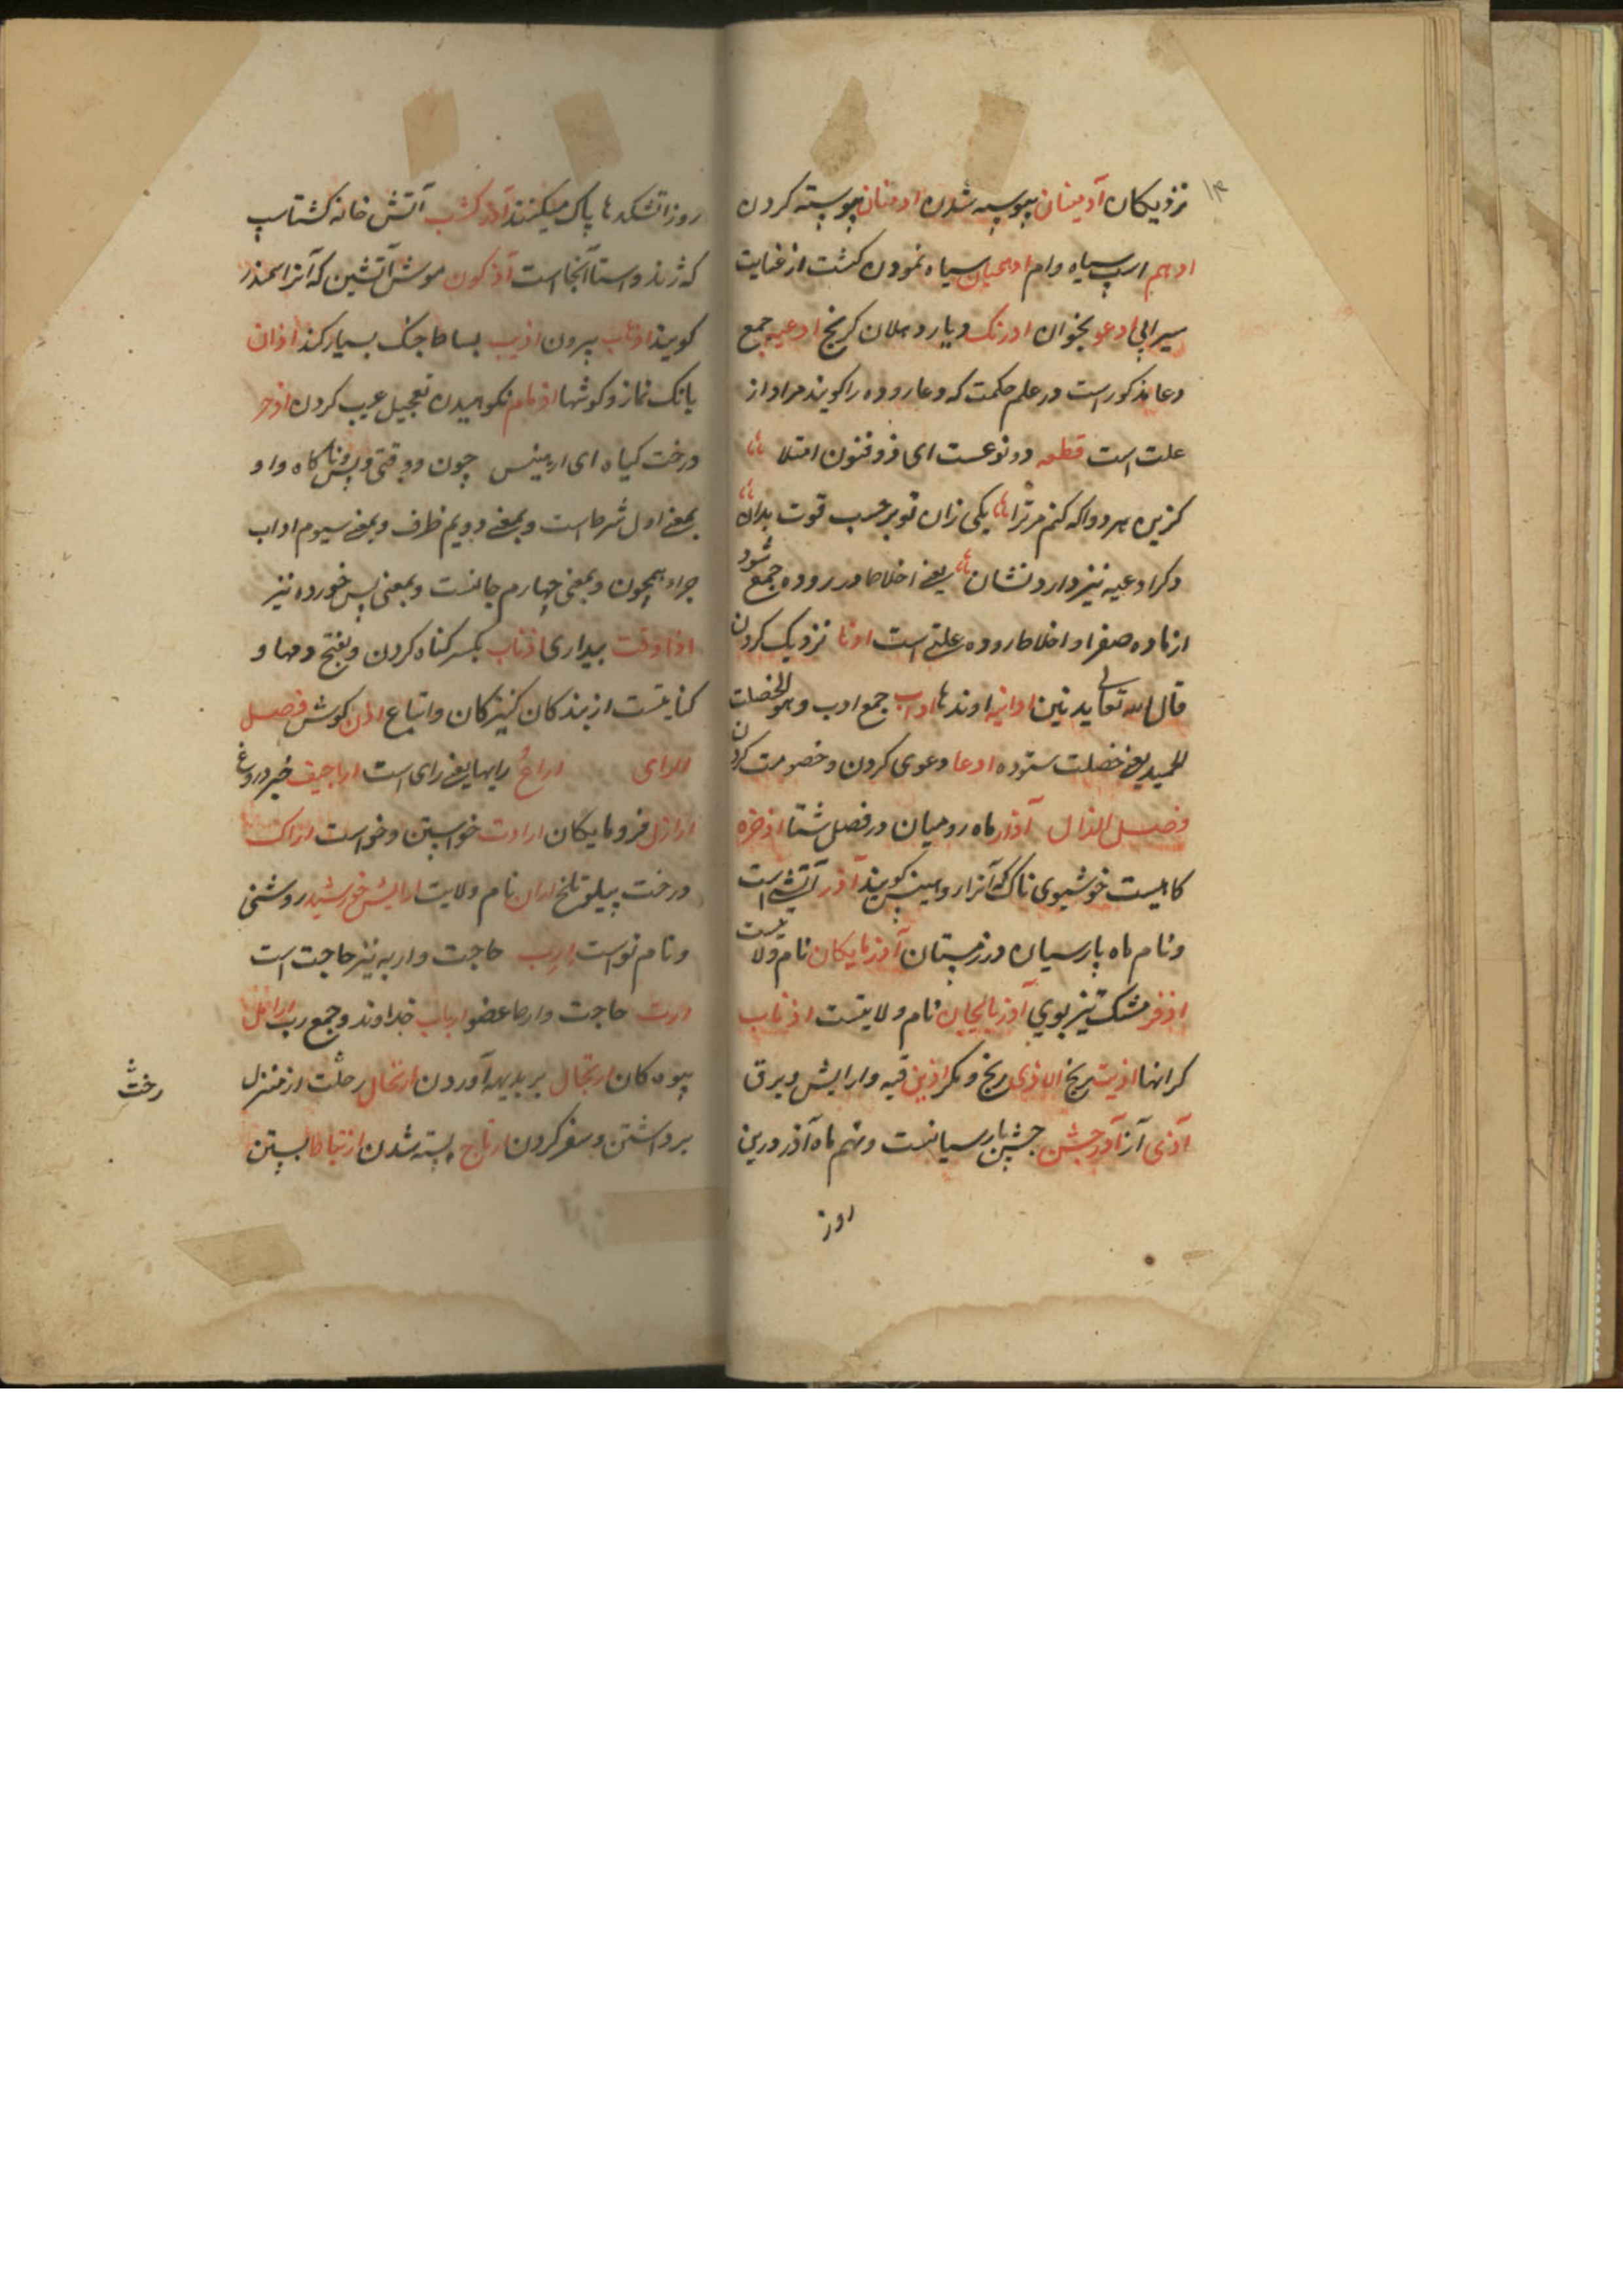 ۱۴
نزدیکان آدمینان پیوسته شدن ادمنان پیوسته کردن
ادهم اسپ سیاه وام ادهیمان سیاه نمودن کشت از غنایت
سیرابی ادعو بخوان ادرنک دیار دهلان کرنج ادعیه جمع
دعا مذکور است در علم حکمت که دعا روده را کویند مراد از
علت است قطعه دو نوعست ای ذوفنون امتلا
کزین هر دو اکه کنم مر ترا یکی زان تو بر حسب قوت بدان
دکر ادعیه نیز دارد نشان یعنی اخلاط در روده جمع شود
از ماده صفرا و اخلاط روده علتی است ادنا نزدیک کردن
قال الله تعالی یدنین ادانیه اوندها اداب جمع ادب و هو الخصلت
الحمید یعنی خصلت ستوده ادعا دعوی کردن و خصومت کردن
فصل الذال آذار ماه رومیان در فصل شتا اذخره
کاهیست خوشبوی ناک که آنرا روهینس کویند آذر آتش است
و نام ماه پارسیان در زمستان آذربایکان نام ولایتست
اذفر مشک تیز بوی آذربایجان نام ولایتست اذناب
کرانها اذیت رنج الاذی رنج و مکر اذین قبه و ارایش و برق
آذی آز آذر جشن جشن پارسیانست و نهم ماه آذر درین
روز
روز آتشکدها پاک میکنند آذر کشب آتش خانه کشتاسپ
که ژند و استا آنجا است آذرکون موش آتشین که آنرا سمندر
کویند اذهاب بیرون اذیب بساط جنک بسیار کند اذان
بانک نماز و کوشها اذمام نکوهیدن تعجیل عیب کردن اذخر
درخت کیاه ای ارمینس چون دو قتی و پس و ناکاه و او
بمعنی اول شرط است و بمعنی دویم ظرف و بمعنی سیوم اداب
جزاء همچون و بمعنی چهارم جانست و بمعنی پس خورده نیز
اذا وقت بیداری اذناب بکسر کناه کردن و بفتح دمها و
کنایتست از بندکان کنیزکان و اتباع اذن کوش فصل
الرای اراءُ رایها یعنی رای است اراجیف خبر دروغ
اراذل فرومایکان ارادت خواستن و خواست اراک
درخت پیلو تلخ اران نام ولایت ارایش خورشید روشنی
و نام نو است ارب حاجت و اربه نیز حاجت است
اربت حاجت و ارحا عضو ارباب خداوند و جمع رب ارامل
بیوه کان ارتجال بر بدیهه آوردن ارتحال رحلت از منزل
برداشتن و سفر کردن ارتاج بسته شدن ارتباط بستن
رخت